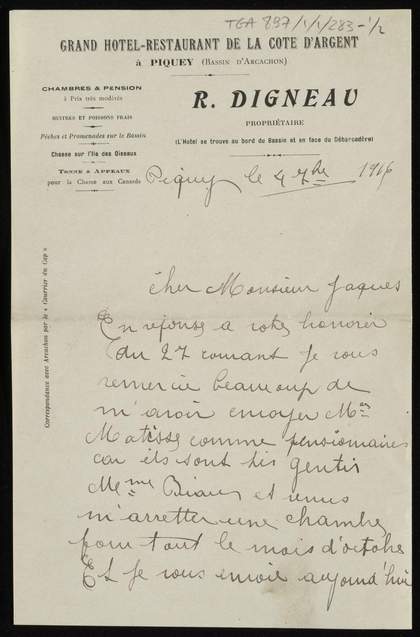 TGA 897/1/1/283-1/2
GRAND HOTEL-RESTAURANT DE LA COTE D'ARGENT
à PIQUEY (BASSIN D'ARCACHON)
CHAMBRES & PENSION
à Prix très modérés
HUITRES ET POISSONS FRAIS
Pêches et Promenades sur le Bassin
Chasse sur l'Ile des Oiseaux
TONNE & APPEAUX
pour la Chasse aux Canards
R. DIGNEAU
PROPRIÉTAIRE
(L'Hotel se trouve au bord du Bassin et en face du Débarcadère)
Piquey le 4 7bre 1916
Correspondance avec Arcachon par le « Courrier du Cap »
Cher Monsieur Jaques
En réponse a votre honorer
du 27 courant Je vous
remercie beaucoup de
m'avoir envoyer Mr
Matisse comme pensionnaires
car ils sont très gentis
Meme et venus
m'arretter une chambre
pour tout le mois d'octobre
Et Je vous envoie aujourd'hui